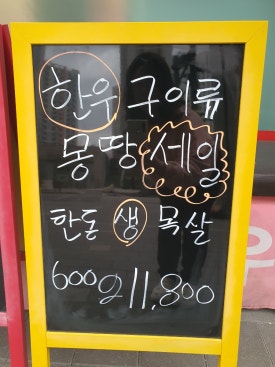 한우 구이류
몽땅 세일
한돈 생 목살
600g 11,800